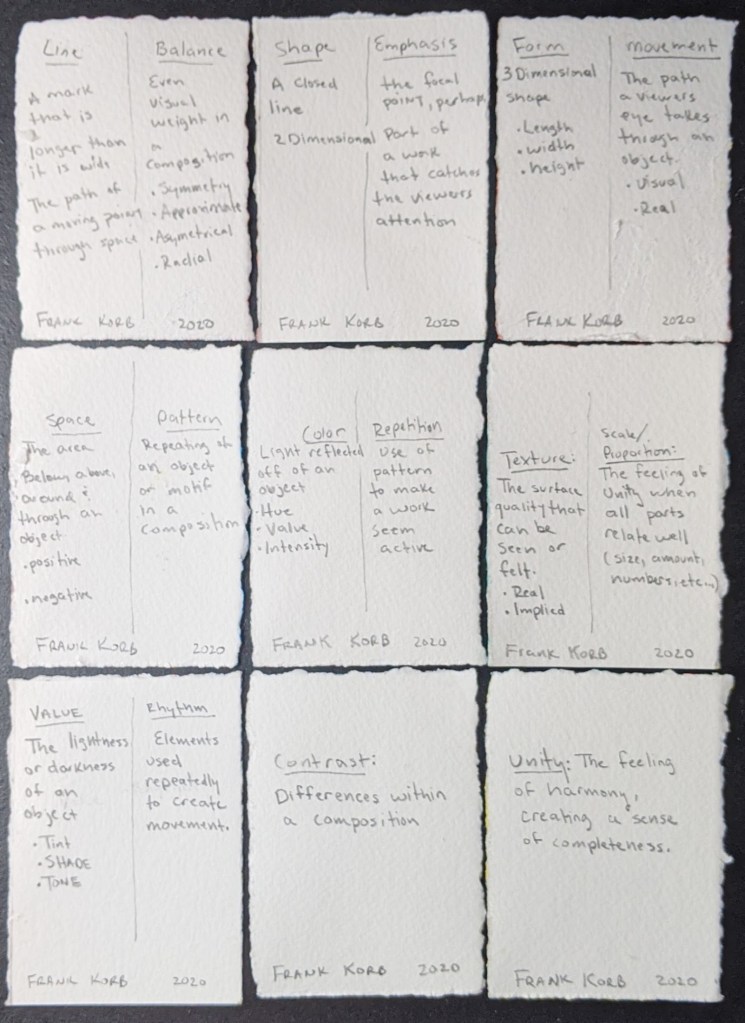 Line
A mark
that is
longer than
it is wide
The path of
a moving point
through space
Balance
Even
visual
weight in
a
composition
• Symmetry
• Approximate
• Asymetrical
• Radial
FRANK KORB 2020
Shape
A closed
line
2 Dimensional
Emphasis
the focal
point, perhaps
Part of
a work
that catches
the viewers
attention
FRANK KORB 2020
Form
3 Dimensional
shape
• Length
• width
• height
movement
The path
a viewers
eye takes
through an
object.
• Visual
• Real
FRANK KORB 2020
Space
The area
Below, above,
around &
through an
object
• positive
• negative
Pattern
Repeating of
an object
or motif
in a
composition
FRANK KORB 2020
Color
Light reflected
off of an
object
• Hue
• Value
• Intensity
Repetition
use of
pattern
to make
a work
seem
active
FRANK KORB 2020
Texture:
The surface
quality that
can be
seen or
felt.
• Real
• Implied
Scale/
Proportion:
The feeling of
Unity when
all parts
relate well
(size, amount,
numbers, etc...)
Frank KORB 2020
VALUE
The lightness
or darkness
of an
object
• Tint
• SHADE
• TONE
Rhythm
Elements
used
repeatedly
to create
movement.
FRANK KORB 2020
Contrast:
Differences within
a composition
FRANK KORB 2020
Unity: The feeling
of harmony,
creating a sense
of completeness.
FRANK KORB 2020